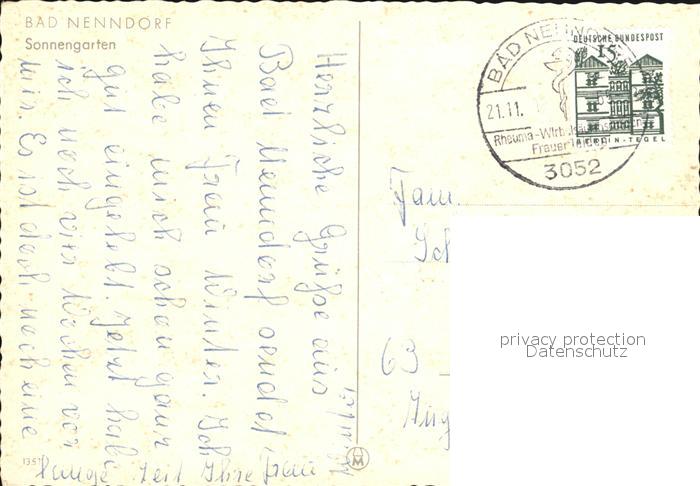 BAD NENNDORF
Sonnengarten
Herzliche Grüße aus
Bad Nenndorf sendet
Ihnen Frau Winter. Ich
habe mich schon ganz
gut eingelebt. Jetzt habe
ich noch vier Wochen vor
mir. Es ist doch noch eine
lange Zeit Ihre Frau
BAD NENN
21.11.
Rheuma-Wirb
Frauenleiden
3052
DEUTSCHE BUNDESPOST
15
BERLIN-TEGEL
Fam.
Sch
63
privacy protection
Datenschutz